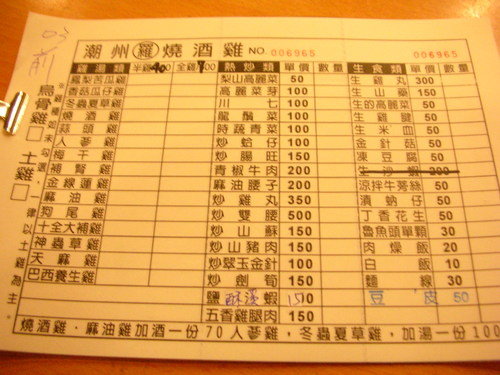 潮州 羅 燒酒雞 NO. 006965 006965
03 前
雞湯類 半雞400 全雞700 熱炒類 單價 數量 生食類 單價 數量
鳳梨苦瓜雞 梨山高麗菜 50 生雞丸 300
香菇瓜仔雞 高麗菜芽 100 生山藥 150
冬蟲夏草雞 川七 100 生的高麗菜 50
燒酒雞 龍鬚菜 100 生雞腱 50
蒜頭雞 時蔬青菜 100 生米血 50
人蔘雞 炒蛤仔 100 金針菇 50
梅干雞 炒腸旺 150 凍豆腐 50
補腎雞 青椒牛肉 200 生沙蝦 200
金線蓮雞 麻油腰子 200 涼拌牛蒡絲 50
麻油雞 炒雞丸 350 滇蚋仔 50
狗尾雞 炒雙腰 500 丁香花生 50
十全大補雞 炒山蘇 150 魯魚頭單顆 30
神蟲草雞 炒山豬肉 150 肉燥飯 20
天麻雞 炒翠玉金針 100 白飯 10
巴西養生雞 炒劍筍 150 麵線 30
鹽酥溪蝦 150 豆皮 50
五香雞腿肉 150
烏骨雞□ 土雞□
燒酒雞，麻油雞加酒一份70人蔘雞，冬蟲夏草雞，加湯一份100